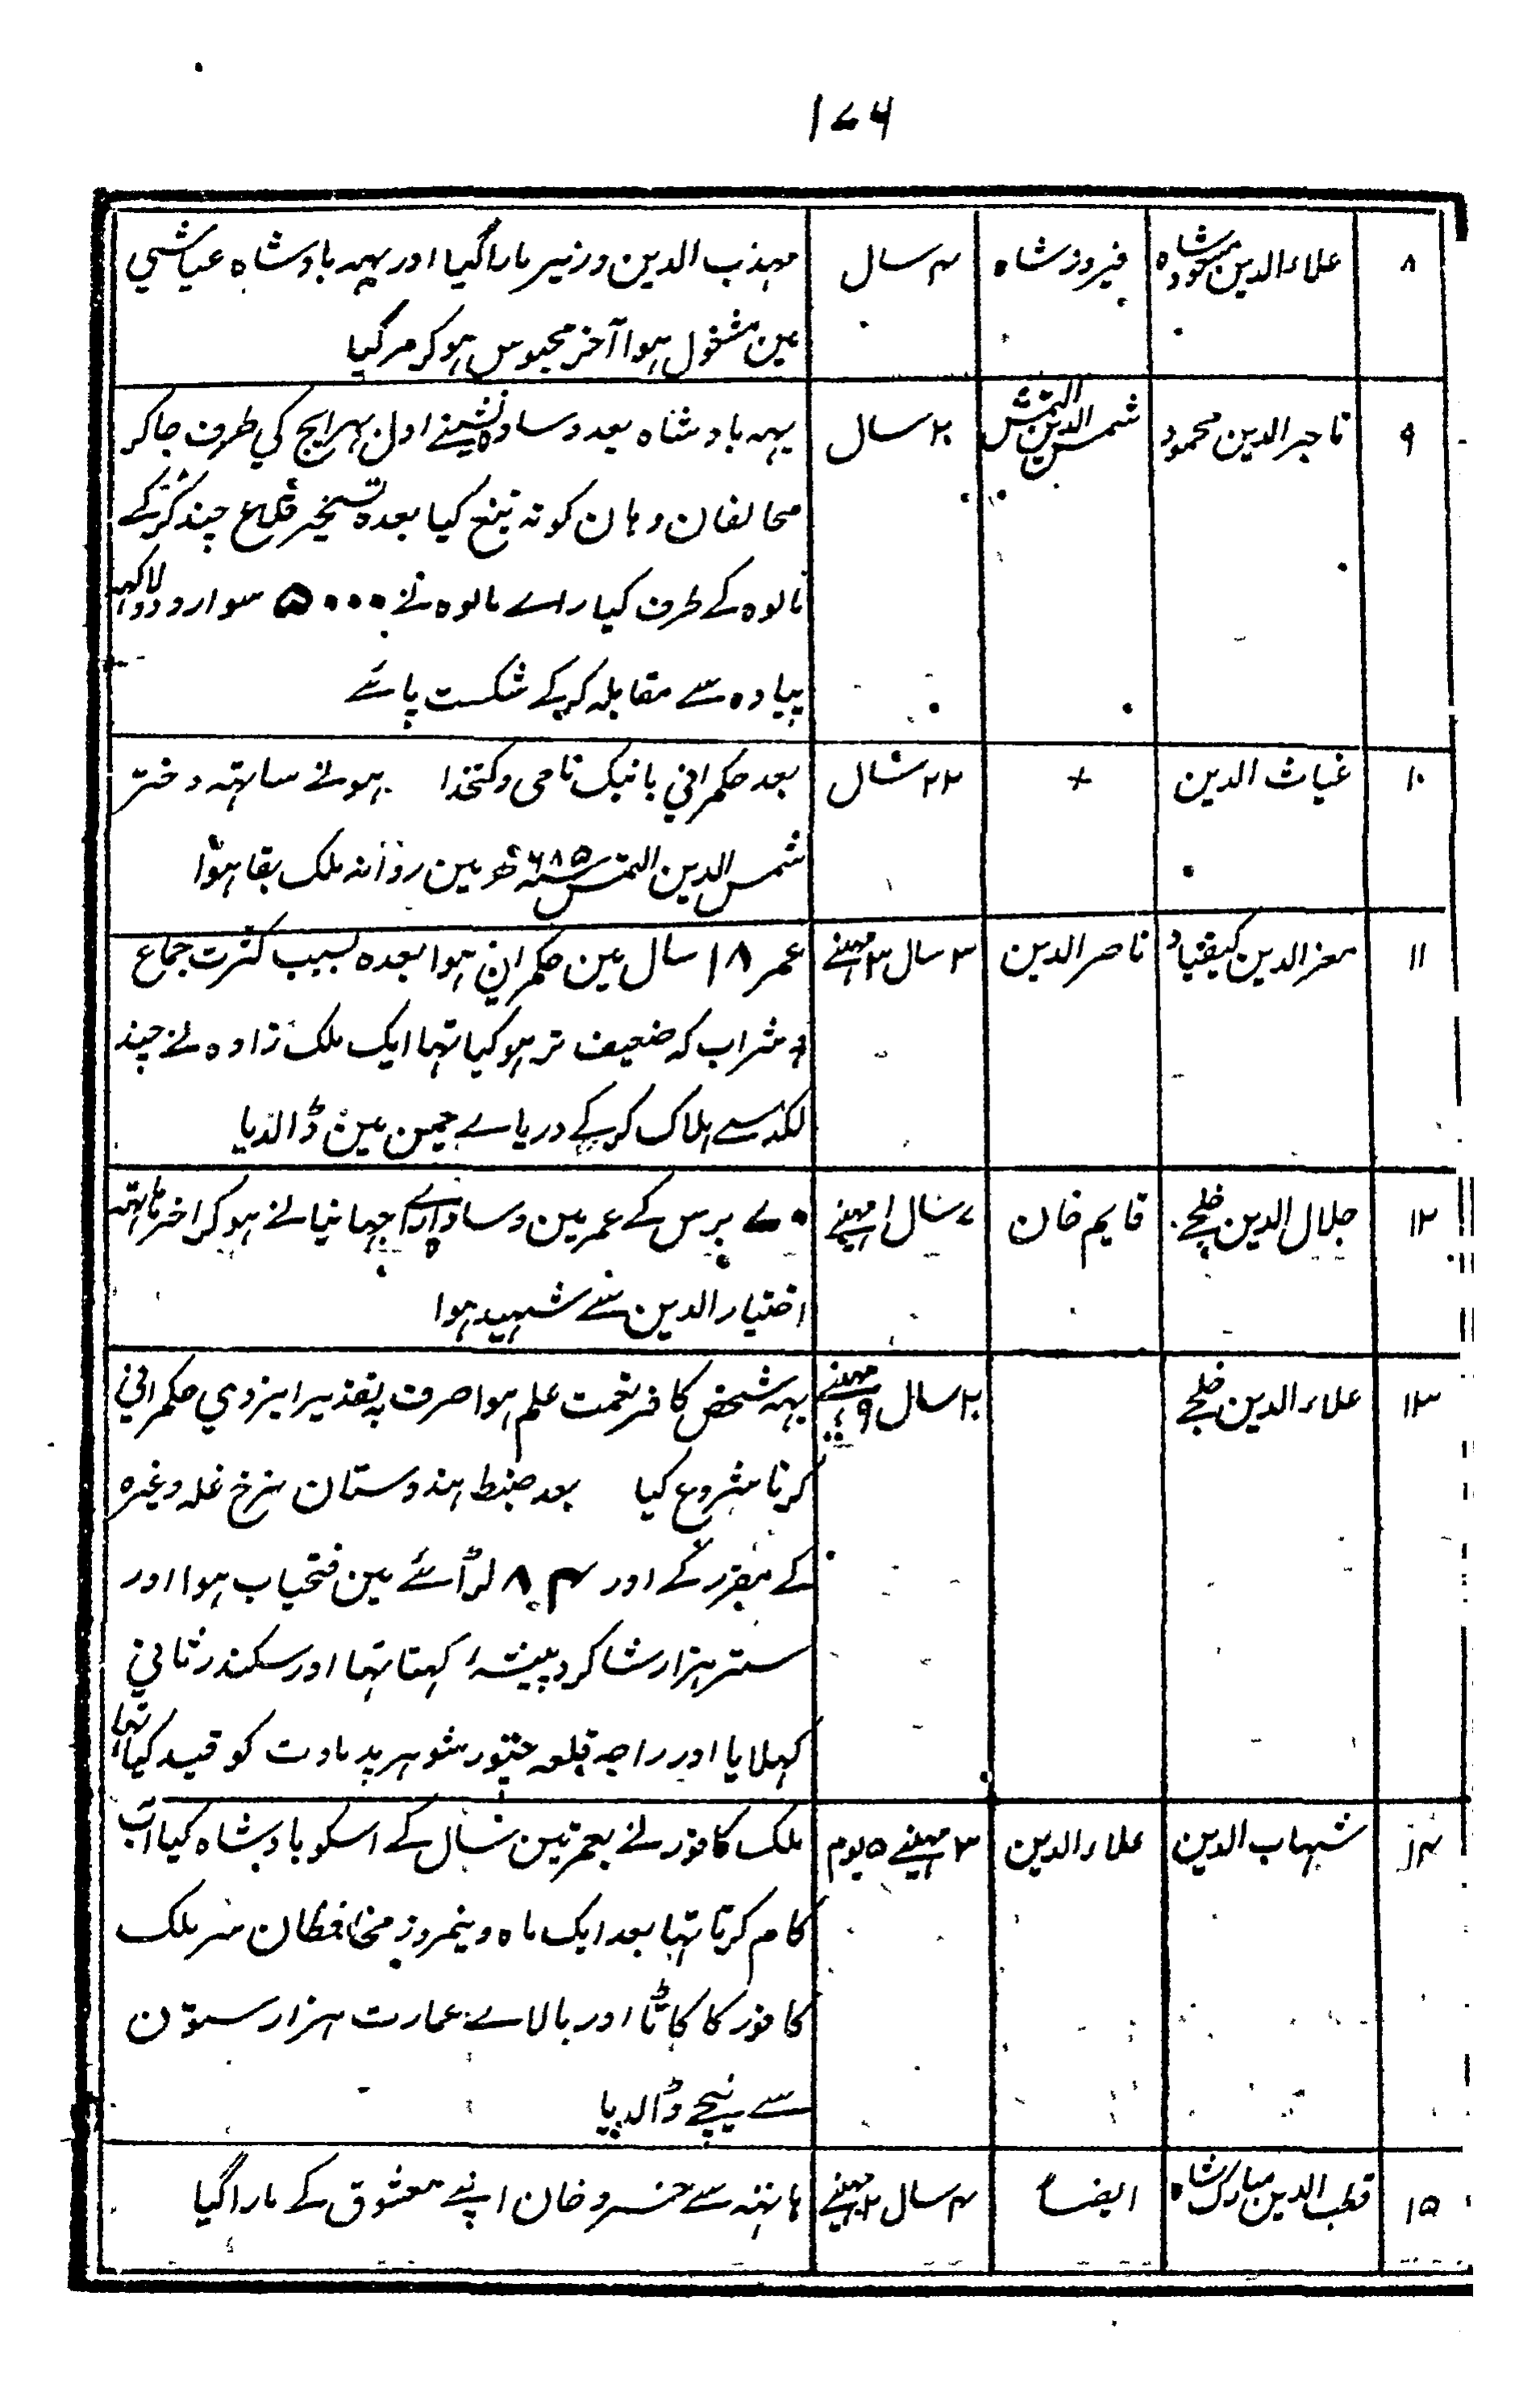 ۱۷۶
۸ علاء الدین مسعود شاہ فیروز شاہ ۴ سال مہذب الدین وزیر مارا گیا اور یہہ بادشاہ عیاشی
مین مشغول ہوا آخر محبوس ہو کر مر گیا
۹ ناصر الدین محمود شمس الدین التمش ۲۰ سال یہہ بادشاہ بعد وسادہ نشینے اول بہرایج کی طرف جا کر
مخالفان وہان کو تہ تیغ کیا بعدہ تسخیر قلاع چند کر کے
مالوہ کے طرف کیا راے مالوہ نے ۵۰۰۰ سوار و دو لاکہہ
پیادہ سے مقابلہ کر کے شکست پائے
۱۰ غیاث الدین + ۲۲ سال بعد حکمرانی بانیک نامی و کتخدا ہونے ساتہہ دختر
شمس الدین التمش سنہ ۶۸۵ھ مین روانہ ملک بقا ہوا
۱۱ معز الدین کیقباد ناصر الدین ۳ سال ۳ مہینے عمر ۱۸ سال مین حکمران ہوا بعدہ بسبب کثرت جماع
و شراب کہ ضعیف تر ہو کیا تہا ایک ملک زادہ نے چند
لکد سے ہلاک کر کے دریاے جمن مین ڈالدیا
۱۲ جلال الدین خلجے قایم خان ۷ سال ۱ مہینے ۷۰ برس کے عمر مین وسادہ آراے جہانبانے ہو کر اخر ہاتہہ
اختیار الدین سے شہید ہوا
۱۳ علاء الدین خلجے ۲۰ سال ۹ مہینے یہہ شخص کافر نعمت علم ہوا صرف بہ تقدیر ایزدي حکمراني
کرنا شروع کیا بعد ضبط ہندوستان نرخ غلہ وغیرہ
کے مقرر کے اور ۸۴ لڑائے مین فتحیاب ہوا اور
ستر ہزار شاکرد پیشہ رکہتا تہا اور سکندر ثاني
کہلایا اور راجہ قلعہ چتور شوہر پدماوت کو قید کیا تہا
۱۴ شہاب الدین علاء الدین ۳ مہینے ۵ یوم ملک کافور نے بعمر تین سال کے اسکو بادشاہ کیا آپ
کام کرتا تہا بعد ایک ماہ و پنجروز محافظان سر ملک
کافور کا کاٹا اور بالاے عمارت ہزار ستون
سے نیچے ڈالدیا
۱۵ قطب الدین مبارک شاہ ایضاً ۴ سال ۲ مہینے ہاتہہ سے خسرو خان اپنے معشوق کے مارا گیا